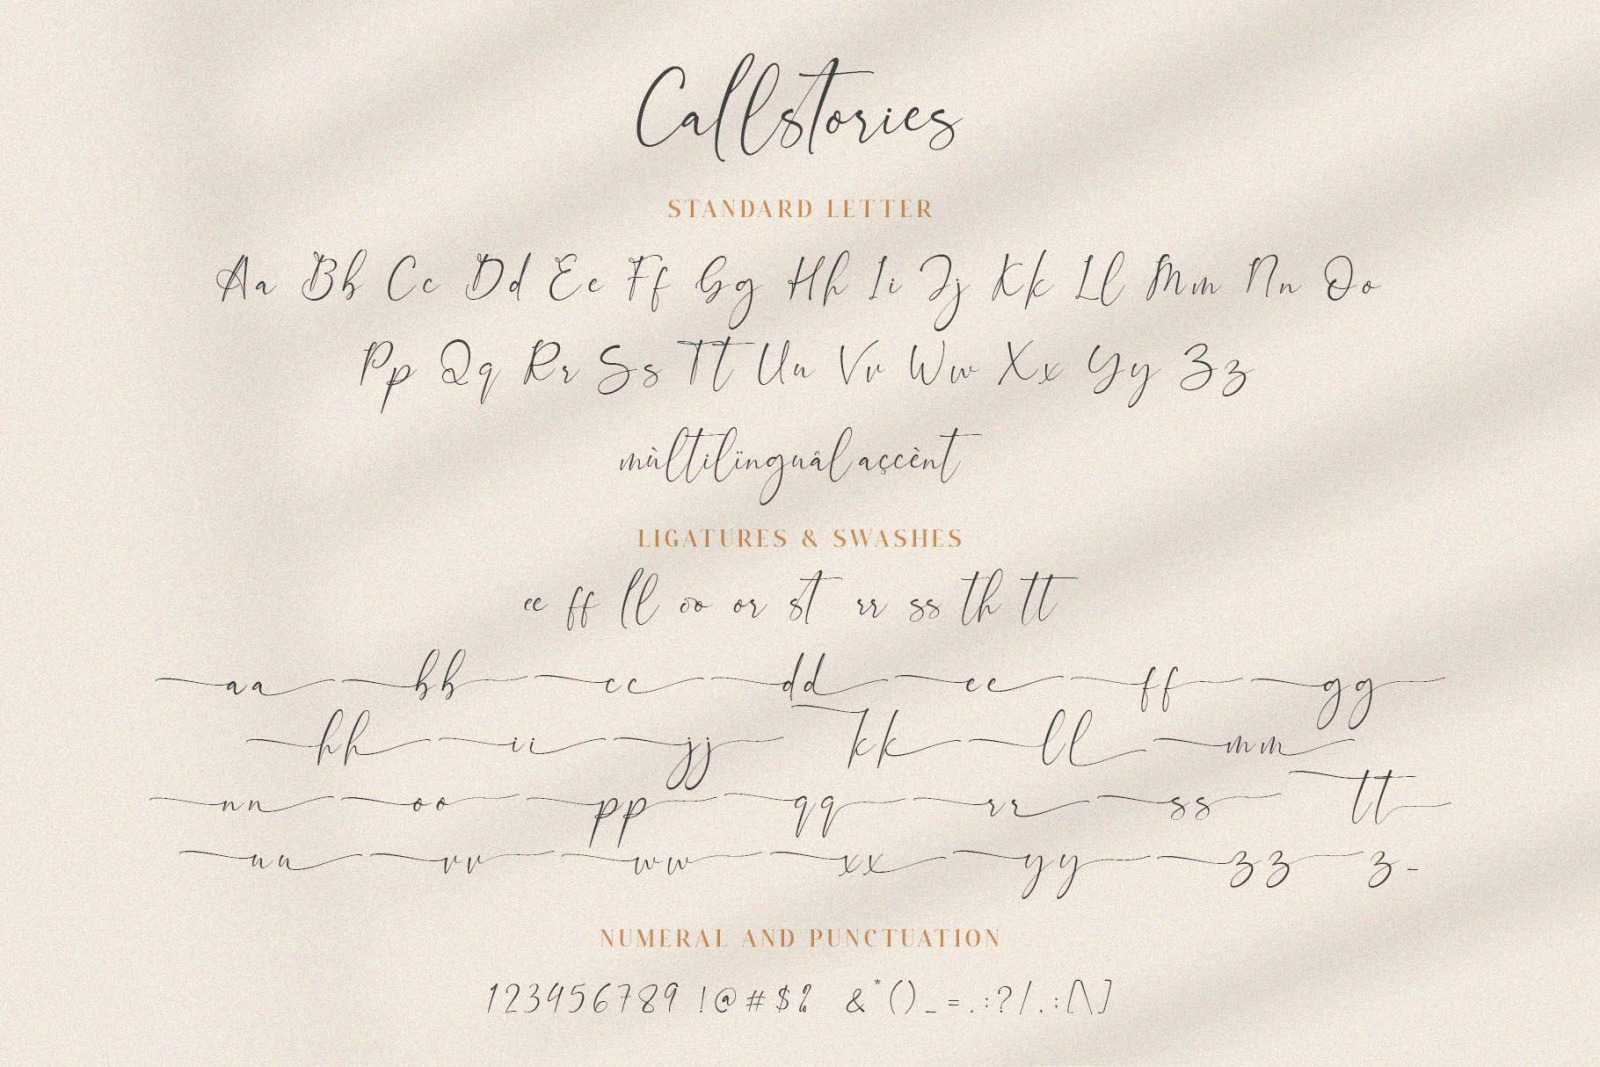 Callstories
STANDARD LETTER
Aa Bb Cc Dd Ee Ff Gg Hh Ii Jj Kk Ll Mm Nn Oo
Pp Qq Rr Ss Tt Uu Vv Ww Xx Yy Zz
mùltilïnguâl açcènt
LIGATURES & SWASHES
ee ff ll oo or st rr ss th tt
aa bb cc dd ee ff gg
hh ii jj kk ll mm
nn oo pp qq rr ss tt
uu vv ww xx yy zz z_
NUMERAL AND PUNCTUATION
123456789 !@#$% &*()_=.:?/,;[\]